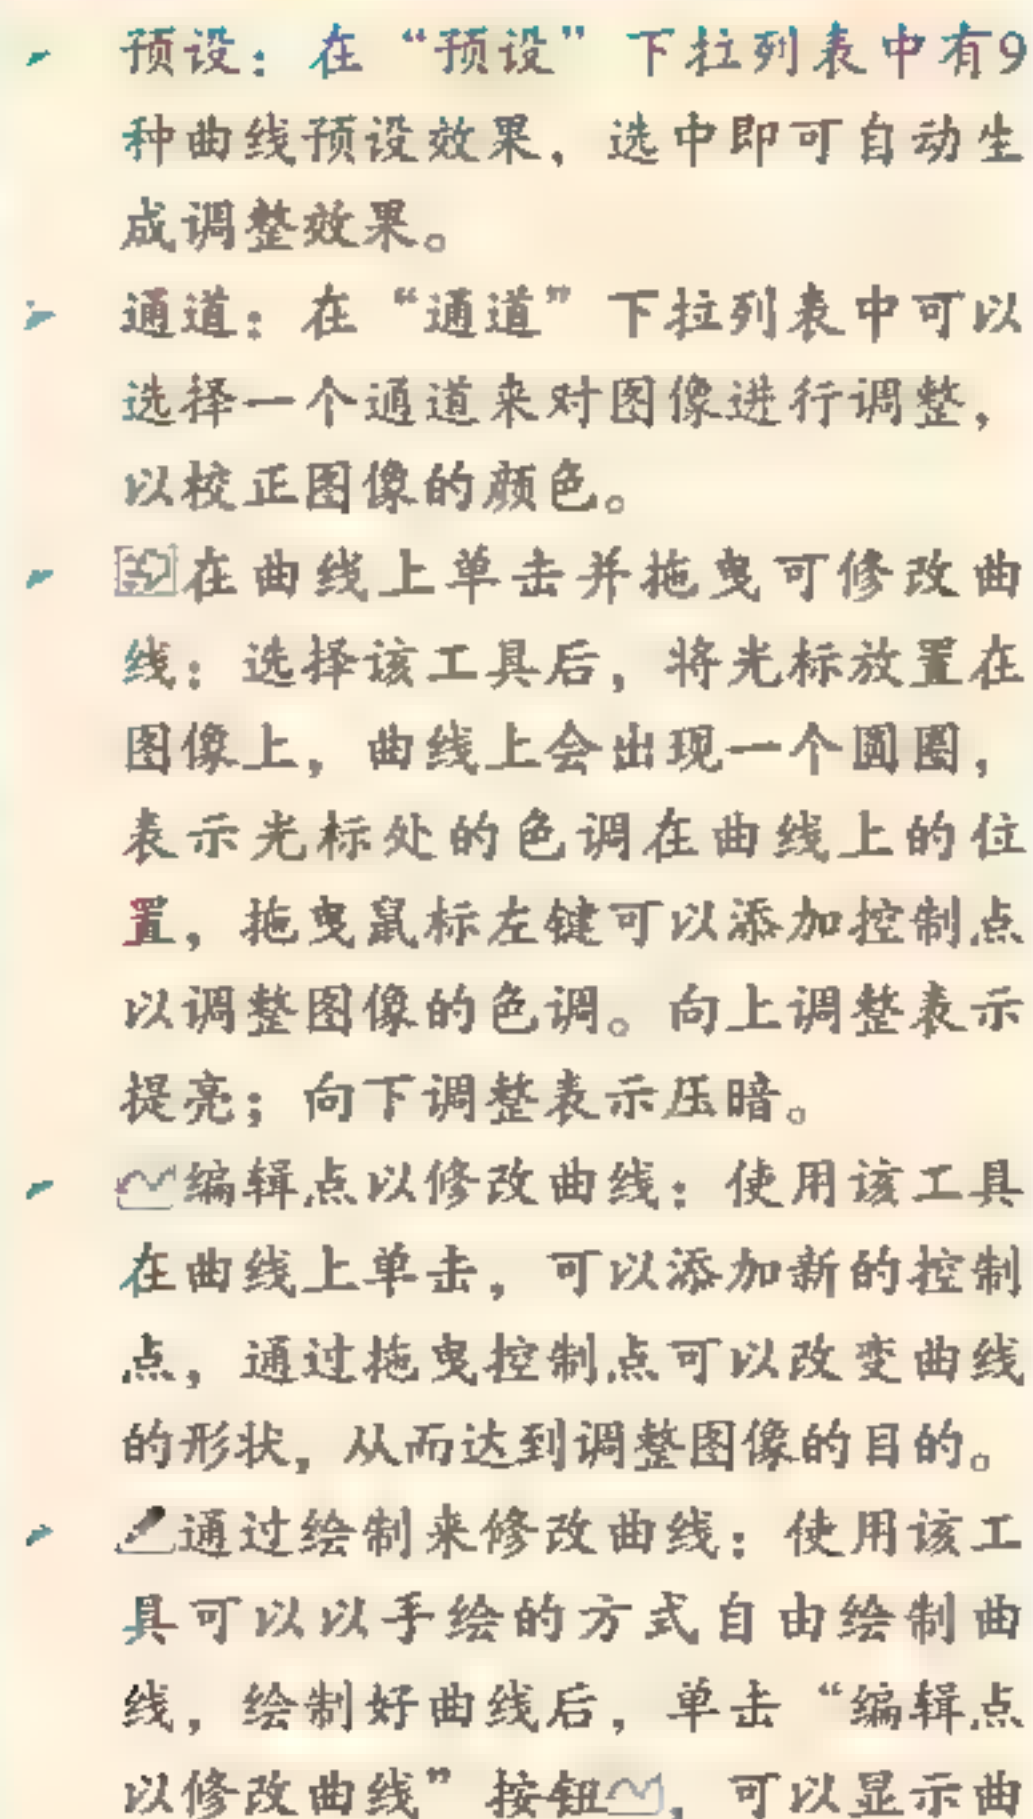 预设：在“预设”下拉列表中有9
种曲线预设效果，选中即可自动生
成调整效果。
通道：在“通道”下拉列表中可以
选择一个通道来对图像进行调整，
以校正图像的颜色。
在曲线上单击并拖曳可修改曲
线：选择该工具后，将光标放置在
图像上，曲线上会出现一个圆圈，
表示光标处的色调在曲线上的位
置，拖曳鼠标左键可以添加控制点
以调整图像的色调。向上调整表示
提亮；向下调整表示压暗。
编辑点以修改曲线：使用该工具
在曲线上单击，可以添加新的控制
点，通过拖曳控制点可以改变曲线
的形状，从而达到调整图像的目的。
通过绘制来修改曲线：使用该工
具可以以手绘的方式自由绘制曲
线，绘制好曲线后，单击“编辑点
以修改曲线”按钮，可以显示曲